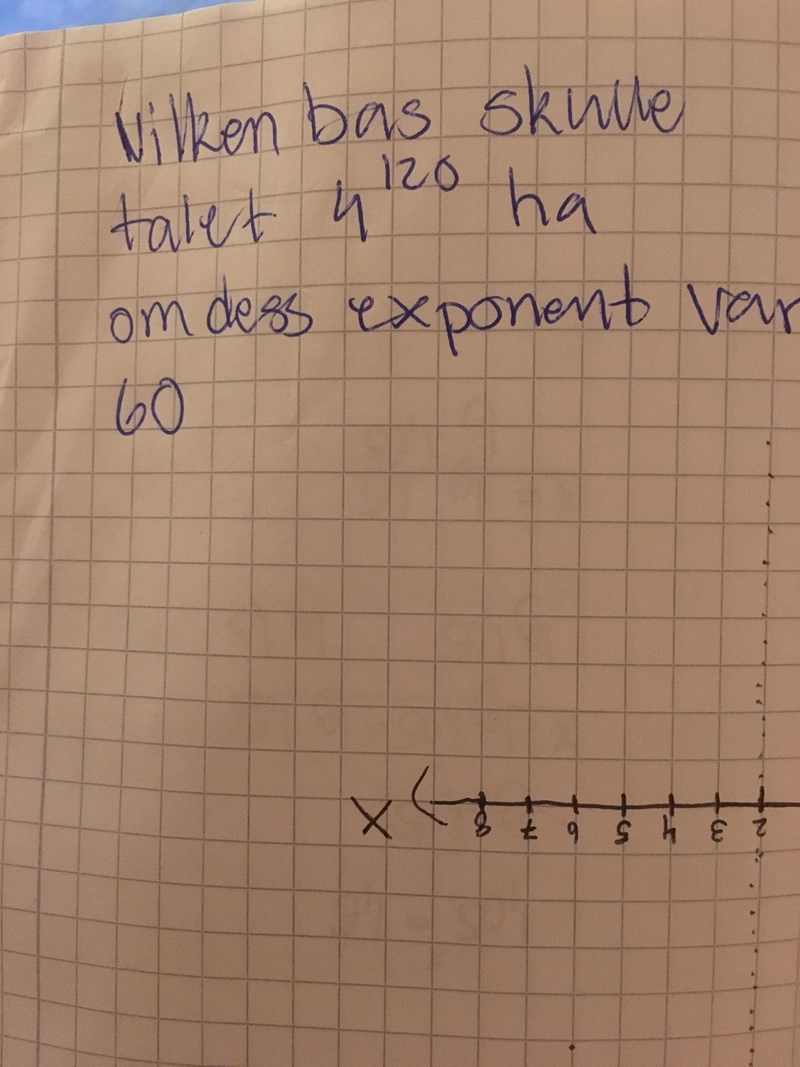 Vilken bas skulle
talet 4¹²⁰ ha
om dess exponent var
60
X 8 7 6 5 4 3 2